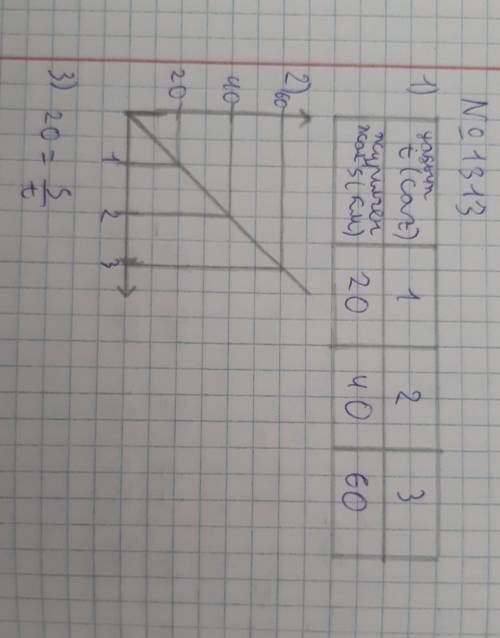 №1313
1)
уақыт t (сағ) 1 2 3
жүрілген жол S (км) 20 40 60
2)
60
40
20
1 2 3
3) 20 = S/t